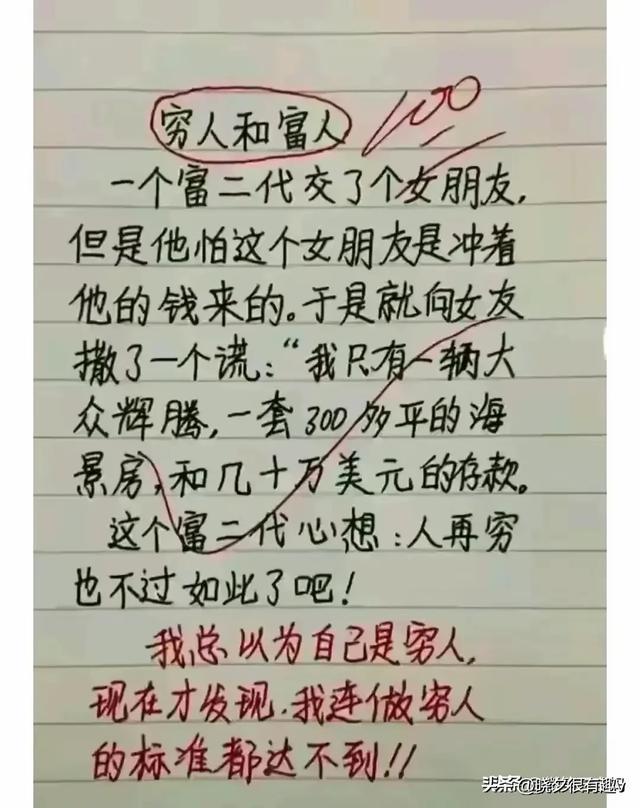 穷人和富人
100
一个富二代交了个女朋友,
但是他怕这个女朋友是冲着
他的钱来的。于是就向女友
撒了一个谎:“我只有一辆大
众辉腾,一套300多平的海
景房,和几十万美元的存款。
这个富二代心想:人再穷
也不过如此了吧!
我总以为自己是穷人,
现在才发现.我连做穷人
的标准都达不到!!
头条@晓汐很有趣吖